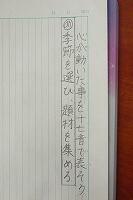 心が動いた事を十七音で表そう
③季節を選び、題材を集める